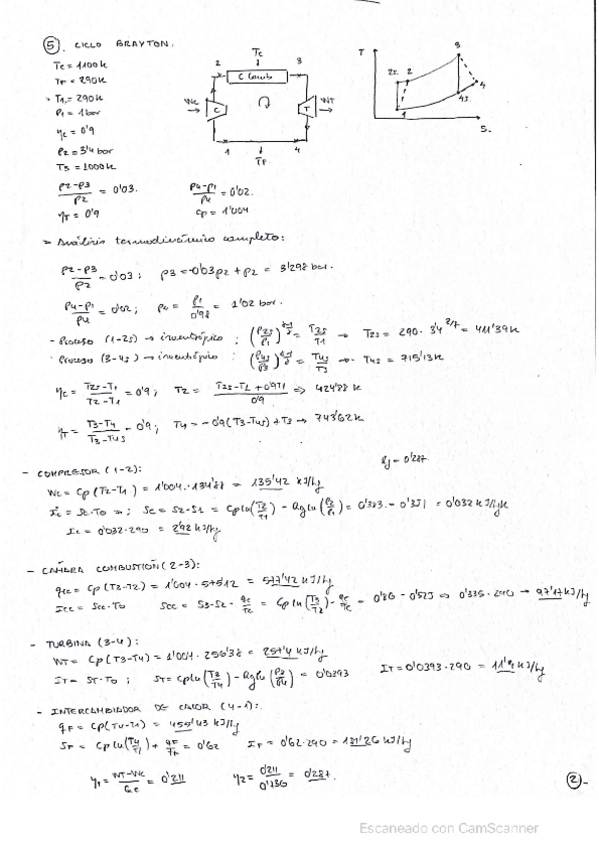 ⑤. CICLO BRAYTON.
Tc = 1100k
TF = 290k
T1 = 290k
P1 = 1 bar
ηc = 0'9
P2 = 3'4 bar
T3 = 1000k
(P2-P3)/P2 = 0'03. (P4-P1)/P4 = 0'02.
ηT = 0'9 Cp = 1'004
Tc
2 3
C Comb
Wc C T WT
1 4
TF
T
3
2s 2
4
4s
1
S.
Análisis termodinámico completo:
(P2-P3)/P2 = 0'03; P3 = -0'03P2 + P2 = 3'298 bar.
(P4-P1)/P4 = 0'02; P4 = P1/0'98 = 1'02 bar.
- Proceso (1-2s) → isentrópico: (P2s/P1)^((γ-1)/γ) = T2s/T1 → T2s = 290 · 3'4^(2/7) = 411'39k
- Proceso (3-4s) → isentrópico: (P4s/P3)^((γ-1)/γ) = T4s/T3 → T4s = 715'13k
ηc = (T2s-T1)/(T2-T1) = 0'9; T2 = (T2s-T1+0'9T1)/0'9 ⇒ 424'88 k
ηT = (T3-T4)/(T3-T4s) = 0'9; T4 = -0'9(T3-T4s)+T3 → 743'62k
Rg = 0'287
- COMPRESOR (1-2):
Wc = Cp(T2-T1) = 1'004 · 134'88 = 135'42 kJ/kg
Ic = Sc·To; Sc = S2-S1 = Cp ln(T2/T1) - Rg ln(P2/P1) = 0'383 - 0'351 = 0'032 kJ/kgk
Ic = 0'032·290 = 9'92 kJ/kg
- CAMARA COMBUSTIÓN (2-3):
qcc = Cp(T3-T2) = 1'004 · 575'12 = 577'42 kJ/kg
Icc = Scc·To Scc = S3-S2 - qc/Tc = Cp ln(T3/T2) - qc/Tc = 0'86 - 0'525 ⇒ 0'335·290 → 97'17 kJ/kg
- TURBINA (3-4):
WT = Cp(T3-T4) = 1'004 · 256'38 = 257'4 kJ/kg
IT = ST·To; ST = Cp ln(T3/T4) - Rg ln(P3/P4) = 0'0393 IT = 0'0393·290 = 11'4 kJ/kg
- INTERCAMBIADOR DE CALOR (4-1):
qF = Cp(T4-T1) = 455'43 kJ/kg
SF = Cp ln(T4/T1) + qF/TF = 0'62 IF = 0'62·290 = 181'26 kJ/kg
η1 = (WT-Wc)/Qc = 0'211 η2 = 0'211/0'736 = 0'287.
②.
Escaneado con CamScanner